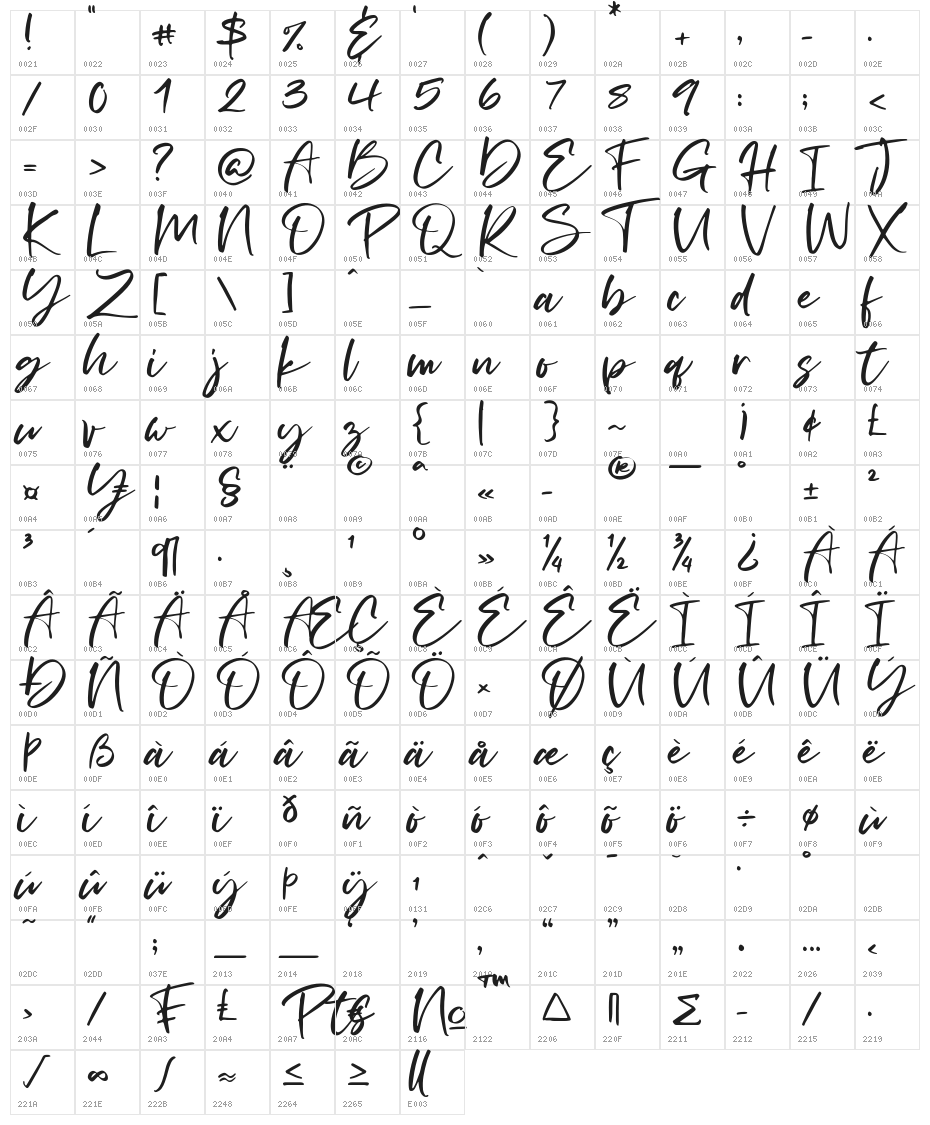 ! " # $ % & ' ( ) * + , - .
0021 0022 0023 0024 0025 0026 0027 0028 0029 002A 002B 002C 002D 002E
/ 0 1 2 3 4 5 6 7 8 9 : ; <
002F 0030 0031 0032 0033 0034 0035 0036 0037 0038 0039 003A 003B 003C
= > ? @ A B C D E F G H I J
003D 003E 003F 0040 0041 0042 0043 0044 0045 0046 0047 0048 0049 004A
K L M N O P Q R S T U V W X
004B 004C 004D 004E 004F 0050 0051 0052 0053 0054 0055 0056 0057 0058
Y Z [ \ ] ^ _ ` a b c d e f
0059 005A 005B 005C 005D 005E 005F 0060 0061 0062 0063 0064 0065 0066
g h i j k l m n o p q r s t
0067 0068 0069 006A 006B 006C 006D 006E 006F 0070 0071 0072 0073 0074
u v w x y z { | } ~ ¡ ¢ £
0075 0076 0077 0078 0079 007A 007B 007C 007D 007E 00A0 00A1 00A2 00A3
¤ ¥ ¦ § ¨ © ª « - ® ¯ ° ± ²
00A4 00A5 00A6 00A7 00A8 00A9 00AA 00AB 00AD 00AE 00AF 00B0 00B1 00B2
³ ´ ¶ · ¸ ¹ º » ¼ ½ ¾ ¿ À Á
00B3 00B4 00B6 00B7 00B8 00B9 00BA 00BB 00BC 00BD 00BE 00BF 00C0 00C1
Â Ã Ä Å Æ Ç È É Ê Ë Ì Í Î Ï
00C2 00C3 00C4 00C5 00C6 00C7 00C8 00C9 00CA 00CB 00CC 00CD 00CE 00CF
Ð Ñ Ò Ó Ô Õ Ö × Ø Ù Ú Û Ü Ý
00D0 00D1 00D2 00D3 00D4 00D5 00D6 00D7 00D8 00D9 00DA 00DB 00DC 00DD
Þ ß à á â ã ä å æ ç è é ê ë
00DE 00DF 00E0 00E1 00E2 00E3 00E4 00E5 00E6 00E7 00E8 00E9 00EA 00EB
ì í î ï ð ñ ò ó ô õ ö ÷ ø ù
00EC 00ED 00EE 00EF 00F0 00F1 00F2 00F3 00F4 00F5 00F6 00F7 00F8 00F9
ú û ü ý þ ÿ ı ˆ ˇ ˉ ˘ ˙ ˚
00FA 00FB 00FC 00FD 00FE 00FF 0131 02C6 02C7 02C9 02D8 02D9 02DA 02DB
˜ ˝ ; – — ‘ ’ ‚ “ ” „ • … ‹
02DC 02DD 037E 2013 2014 2018 2019 201A 201C 201D 201E 2022 2026 2039
› ⁄ ₣ ₤ Pts € № ™ ∆ ∏ ∑ − ∕ ∙
203A 2044 20A3 20A4 20A7 20AC 2116 2122 2206 220F 2211 2212 2215 2219
√ ∞ ∫ ≈ ≤ ≥
221A 221E 222B 2248 2264 2265 E003